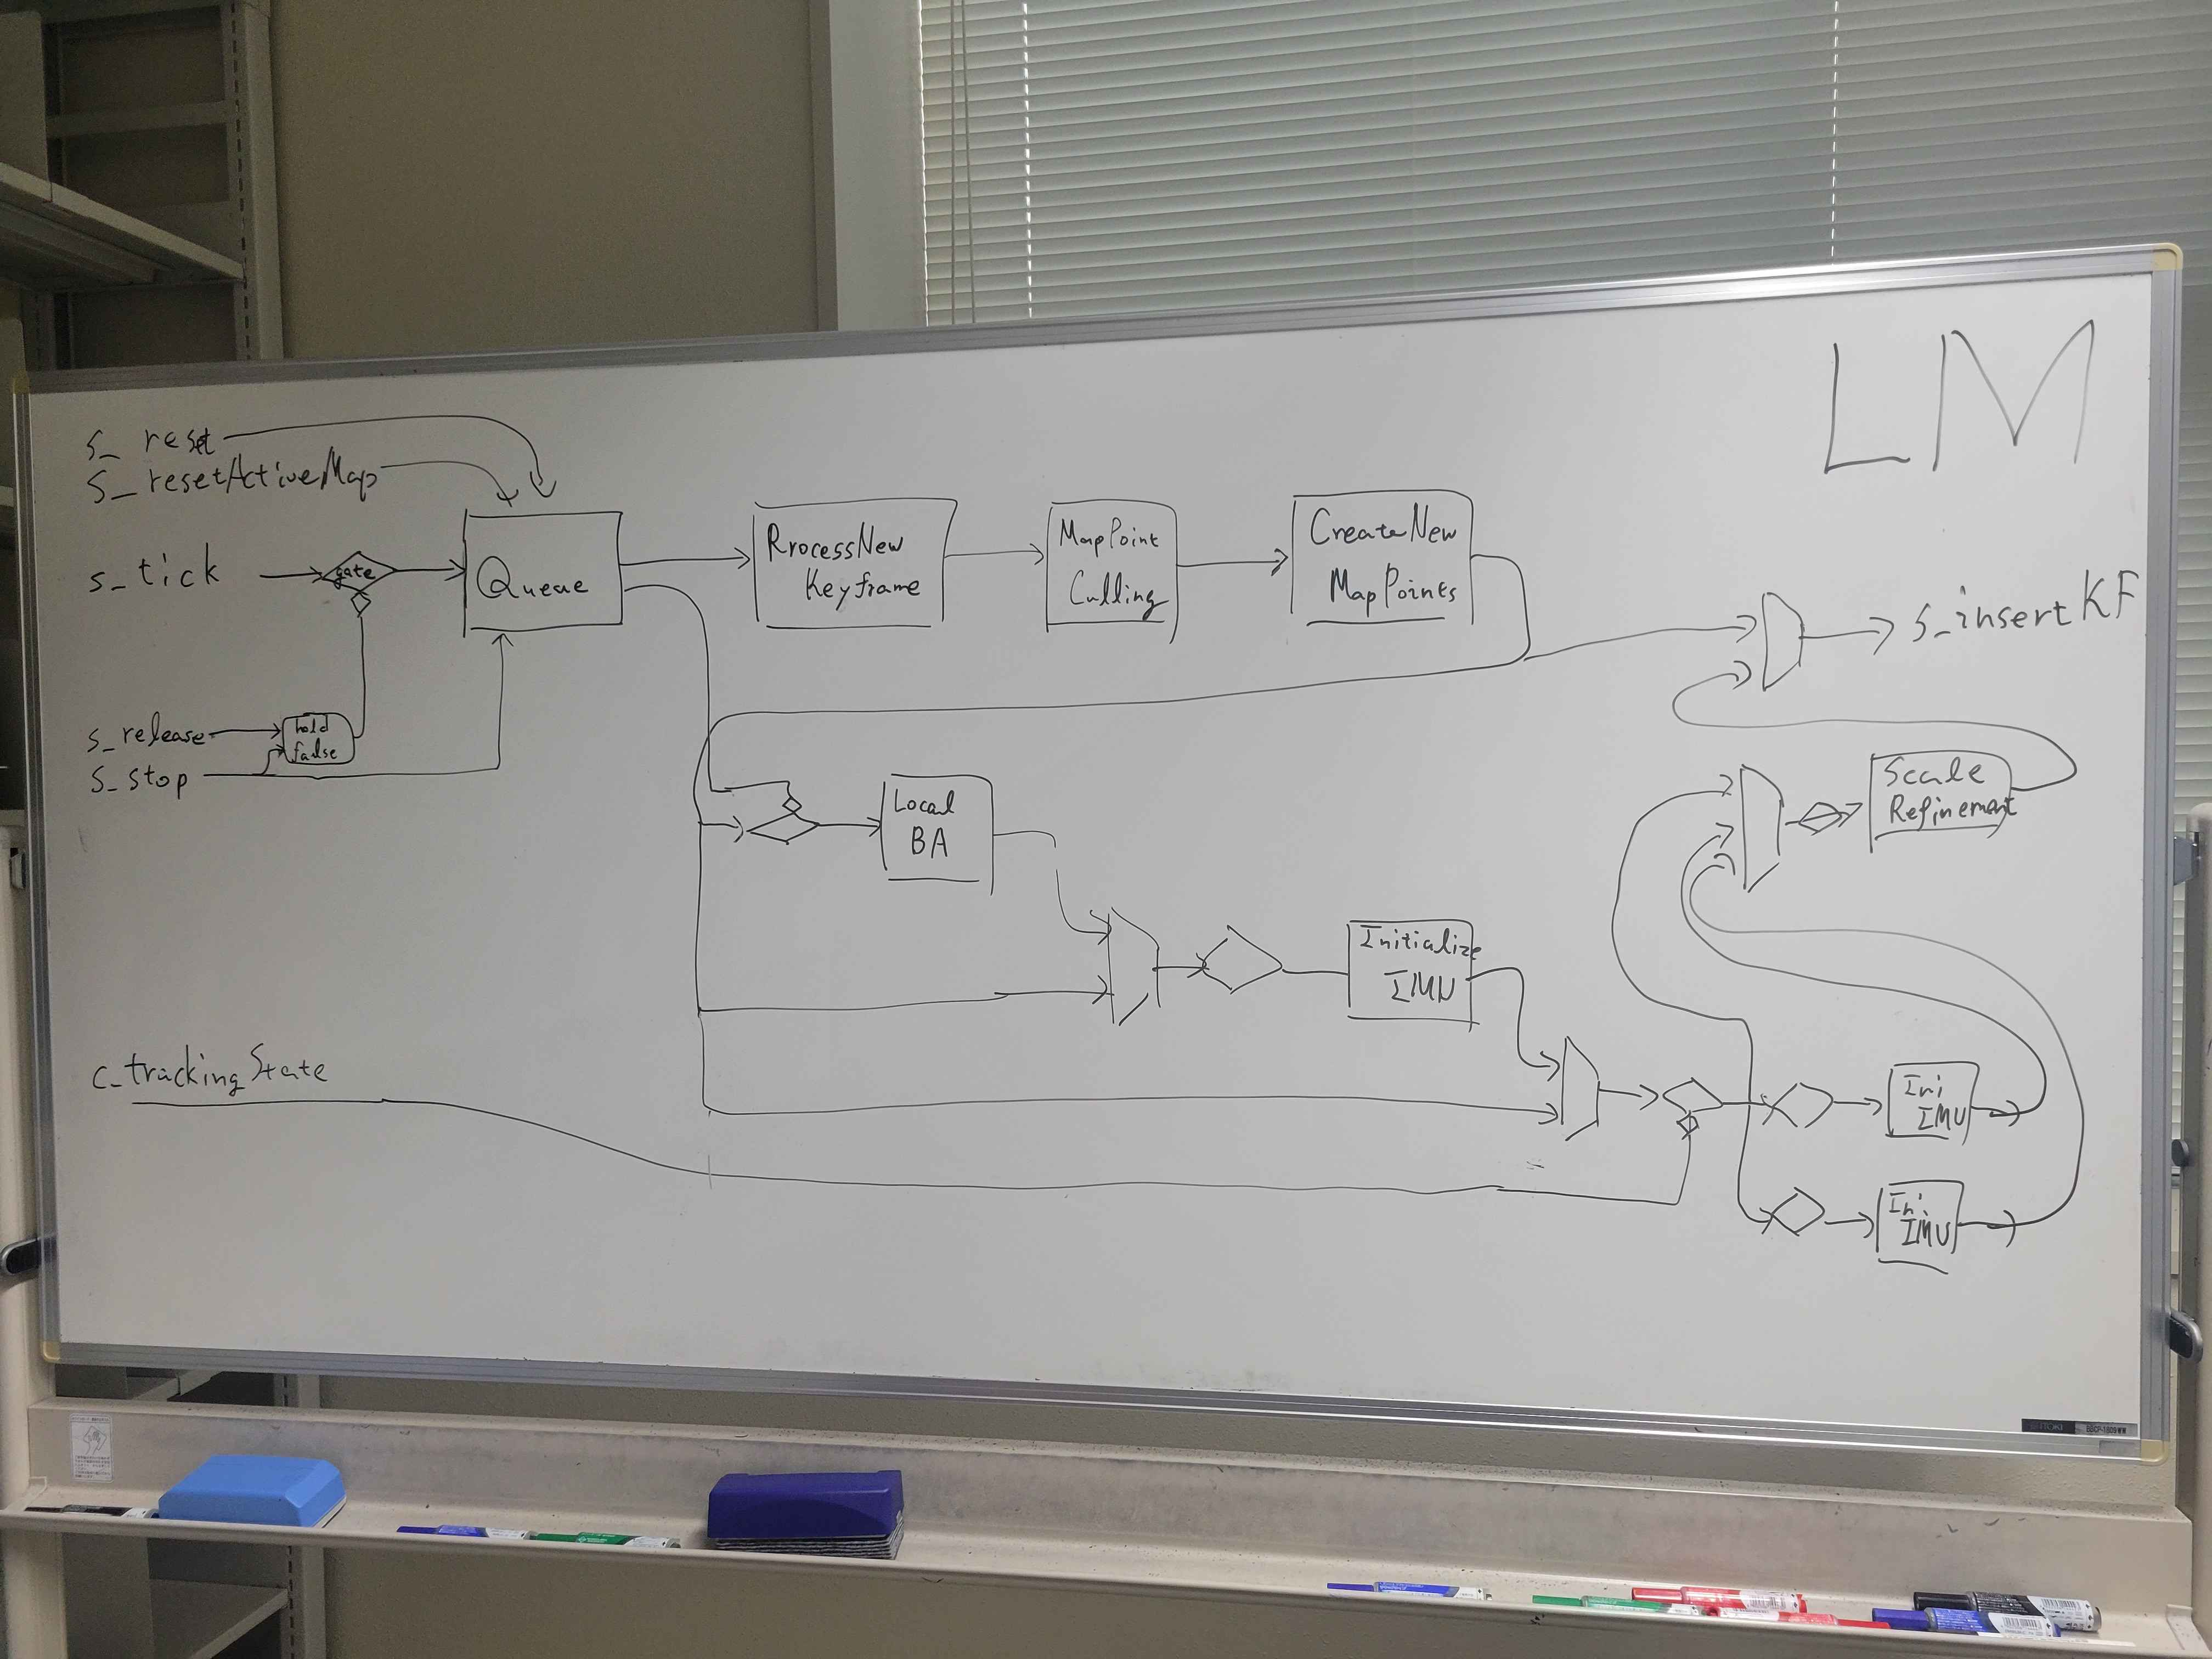 LM
s_ reset
s_ resetActiveMap
s_tick
gate
Queue
RrocessNew
Keyframe
MapPoint
Culling
CreateNew
MapPoints
s_insertKF
s_release
s_stop
hold
false
Local
BA
Scale
Refinement
Initialize
IMU
c_trackingState
Ini
IMU
Ini
IMU